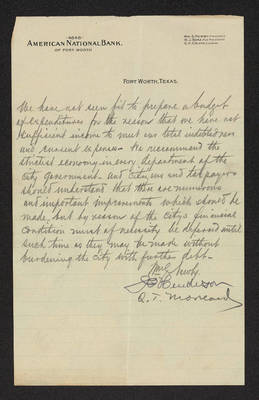 4646
AMERICAN NATIONAL BANK.
OF FORT WORTH
FORT WORTH, TEXAS.
We have not seen fit to prepare a budget
of expenditures for the reason that we have not
sufficient income to meet our total indebtedness
and current expenses - We recommend the
strictest economy in every department of the
city government. and Citizens and tax payers
should understand that there are numerous
and important improvements which should be
made, but by reason of the City's financial
condition must of necessity be deferred until
such time as they may be made without
burdening the City with further debt.
Q. T. Moreland